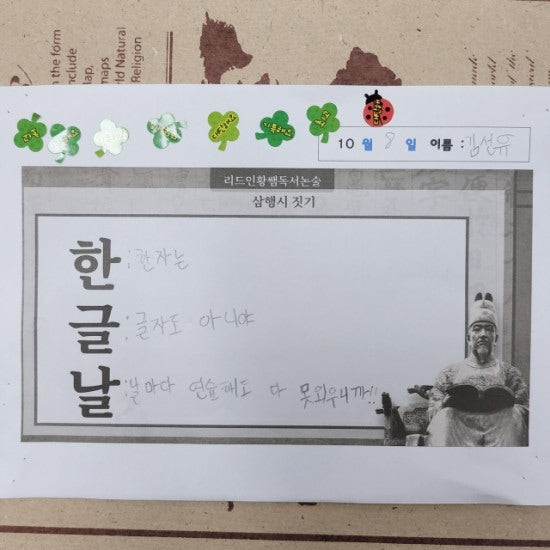 the form
include
map,
maps
World Natural
Religion
made
of the
10 월 8 일 이름 : 김선유
리드인황쌤독서논술
삼행시 짓기
한 : 한자는
글 : 글자도 아니야
날 : 날마다 연습해도 다 못외우니까!!